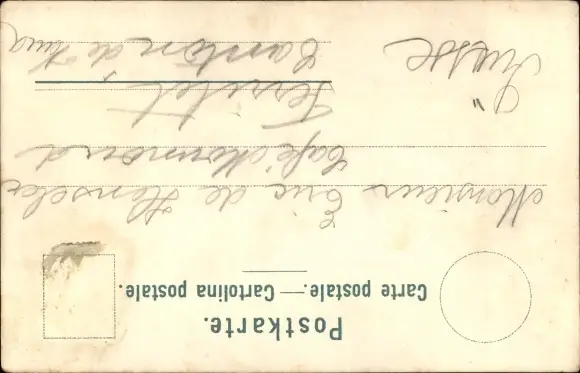 Postkarte.
Carte postale. — Cartolina postale.
Monsieur Eric de
Café
Territet
Canton de
Suisse